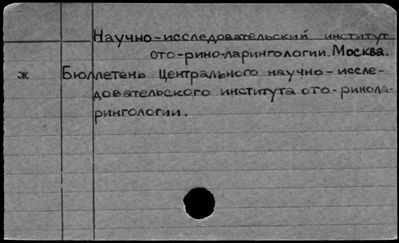 Научно-исследовательский институт
ото-рино-ларингологии. Москва.
ж Бюллетень Центрального научно-иссле-
довательского института ото-ринола-
рингологии.